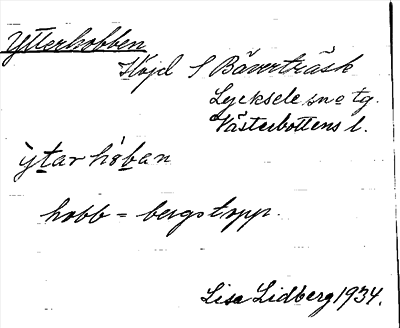 Ytterhobben
Höjd S Bäverträsk
Lycksele sn o tg.
Västerbottens l.
ỳtar hòban
hobb = bergstopp.
Lisa Lidberg 1934.